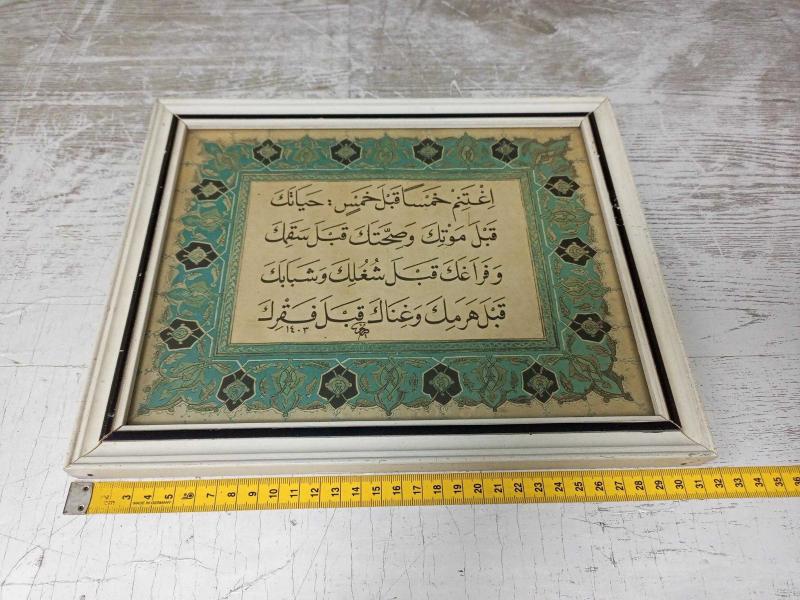 اِغْتَنِمْ خَمْسًا قَبْلَ خَمْسٍ: حَيَاتَكَ
قَبْلَ مَوْتِكَ وَصِحَّتَكَ قَبْلَ سَقَمِكَ
وَفَرَاغَكَ قَبْلَ شُغُلِكَ وَشَبَابَكَ
قَبْلَ هَرَمِكَ وَغِنَاكَ قَبْلَ فَقْرِكَ
١٤٠٣
3 4 5 7 8 9 10 11 12 13 14 15 16 17 18 19 20 21 22 23 24 25 26 27 28 29 30 31 32 33 34 35 36
MADE IN GERMANY